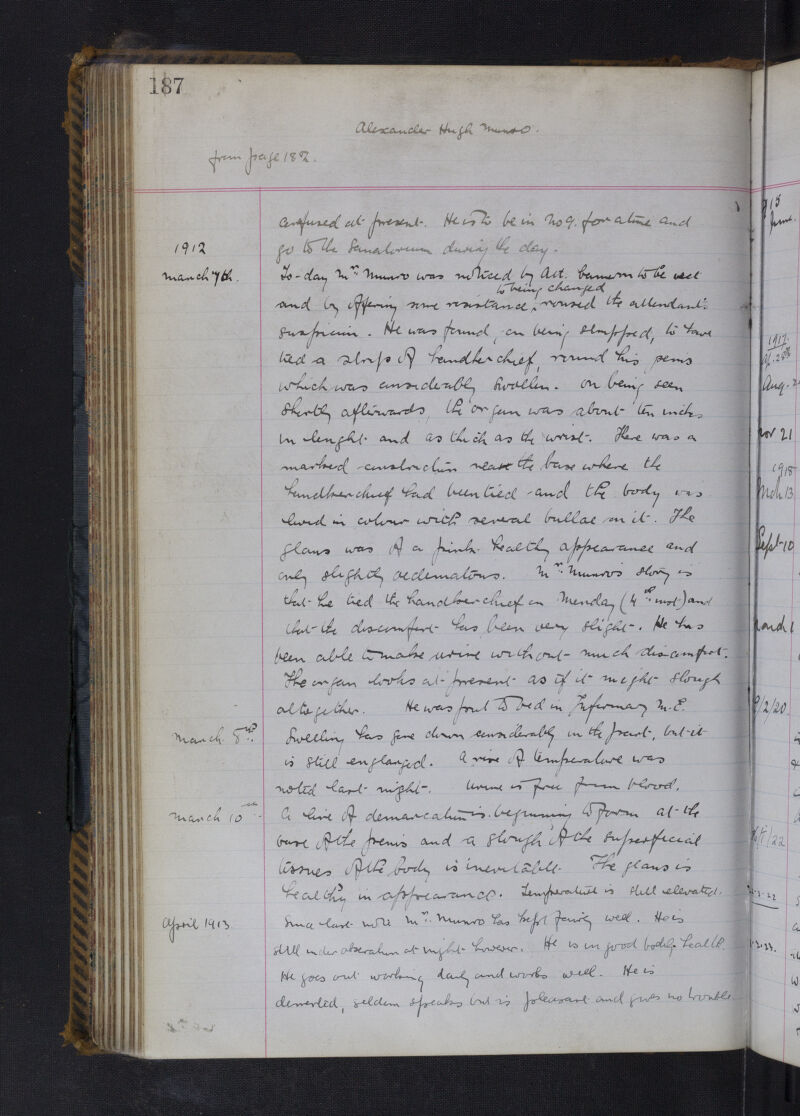 187
Alexander Hugh Munro.
from page 182.
confused at present. He is to be in No 9. for a time and
1912
go to the Sanatorium during the day.
March 7th.
To-day Mr. Munro was noticed by Att. to be wet
to being changed
and by offering some resistance, roused the attendant's
suspicion. He was found, on being stripped, to have
tied a strip of handkerchief, round his penis
which was considerably swollen. On being seen
shortly afterwards, the organ was about ten inches
in lenght and as thick as the wrist. There was a
marked constriction near the base where the
handkerchief had been tied and the body was
livid in colour with several bullae on it. The
glans was of a pink healthy appearance and
only slightly oedematous. Mr. Munro's story is
that he tied the handkerchief on Monday (4th inst) and
that the discomfort has been very slight. He has
been able to make urine without much discomfort.
The organ looks at present as if it might slough
altogether. He was put to bed in Infirmary M.E.
March 8th.
Swelling has gone down considerably in the part, but it
is still englarged. A rise of temperature was
noted last night. Urine is free from blood.
March 10th
A line of demarcation is beginning to form at the
base of the penis and a slough of the superficial
tissues of the body is inevitable. The glans is
healthy in appearance. Temperature is still elevated.
April 1913
Since last note Mr. Munro has kept fairly well. He is
still under observation at night however. He is in good bodily health.
He goes out working daily and works well. He is
demented, seldom speaks but is pleasant and gives no trouble
June.
1917
Aug. 2
Nov 21
1918
Mch 13
Sept 10
March 1
9/2/20